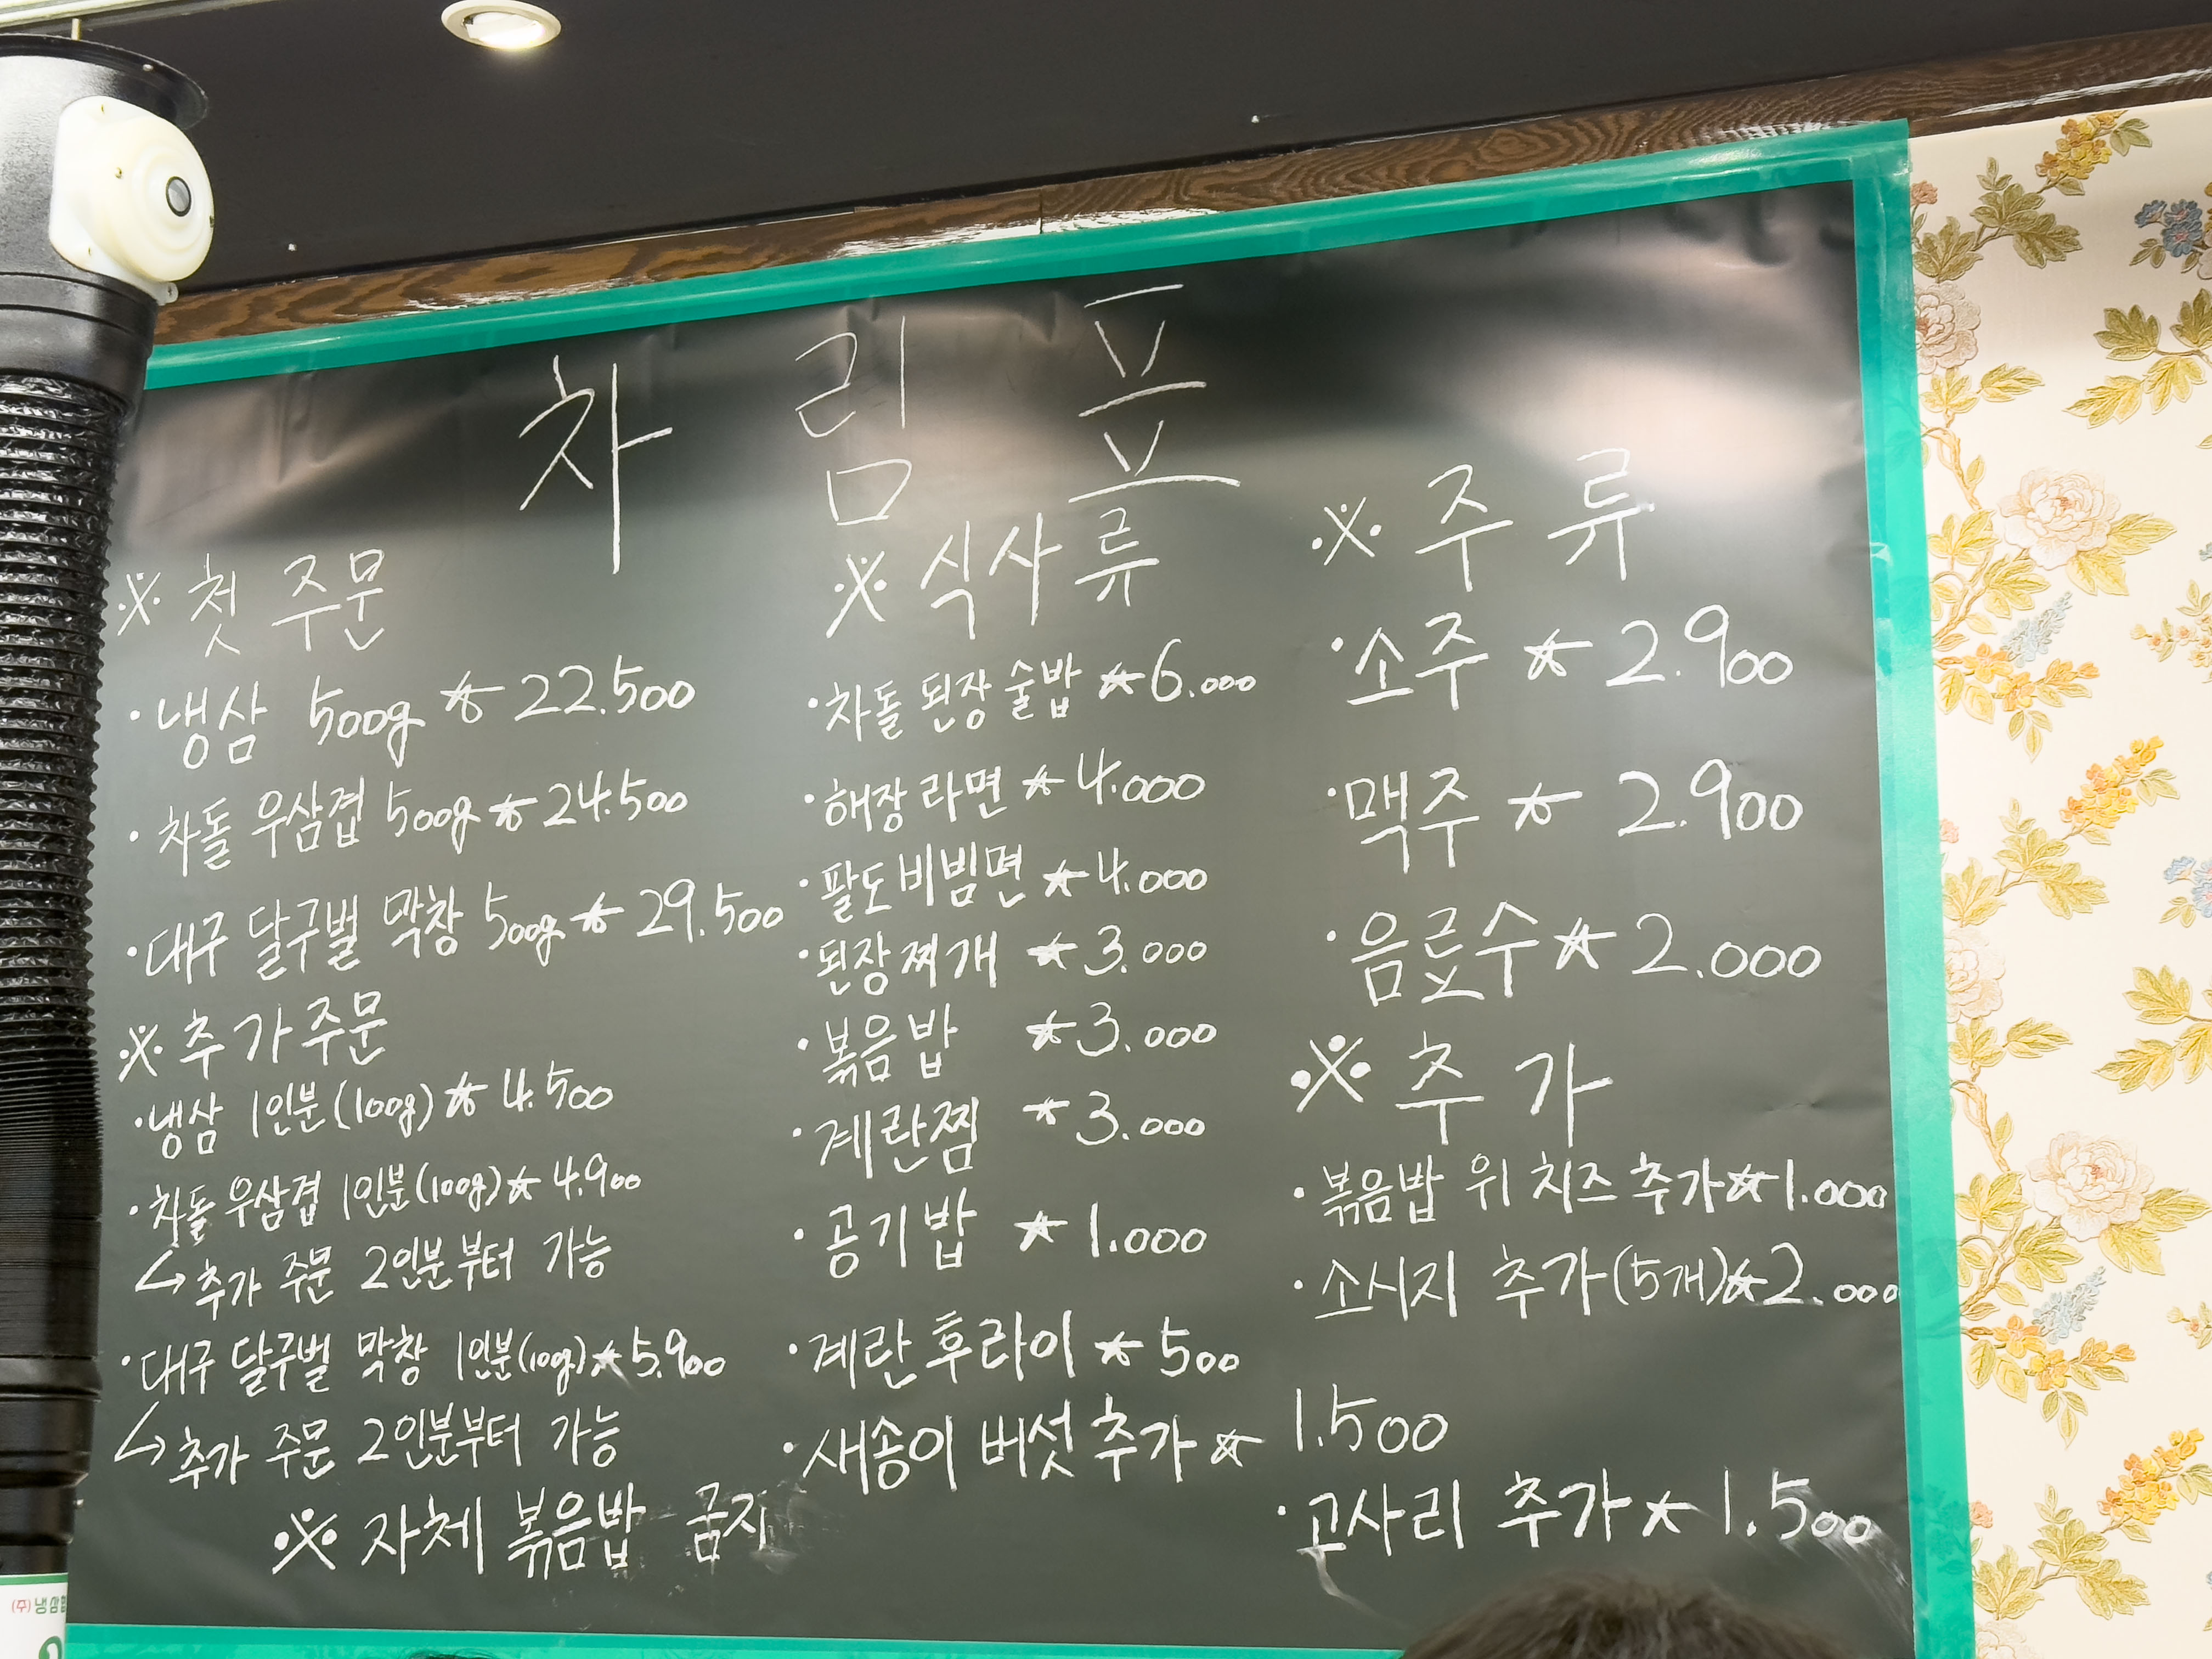 차림표
※ 첫 주문
· 냉삼 500g ☆ 22.500
· 차돌 우삼겹 500g ☆ 24.500
· 대구 달구벌 막창 500g ☆ 29.500
※ 추가주문
· 냉삼 1인분(100g) ☆ 4.500
· 차돌 우삼겹 1인분(100g) ☆ 4.900
↳ 추가 주문 2인분부터 가능
· 대구 달구벌 막창 1인분(100g) ☆ 5.900
↳ 추가 주문 2인분부터 가능
※ 자체 볶음밥 금지
※ 식사류
· 차돌 된장 술밥 ☆ 6.000
· 해장라면 ☆ 4.000
· 팔도비빔면 ☆ 4.000
· 된장찌개 ☆ 3.000
· 볶음밥 ☆ 3.000
· 계란찜 ☆ 3.000
· 공기밥 ☆ 1.000
· 계란후라이 ☆ 500
· 새송이 버섯 추가 ☆ 1.500
※ 주류
· 소주 ☆ 2.900
· 맥주 ☆ 2.900
· 음료수 ☆ 2.000
※ 추가
· 볶음밥 위 치즈 추가 ☆ 1.000
· 소시지 추가(5개) ☆ 2.000
· 고사리 추가 ☆ 1.500
(주)냉삼